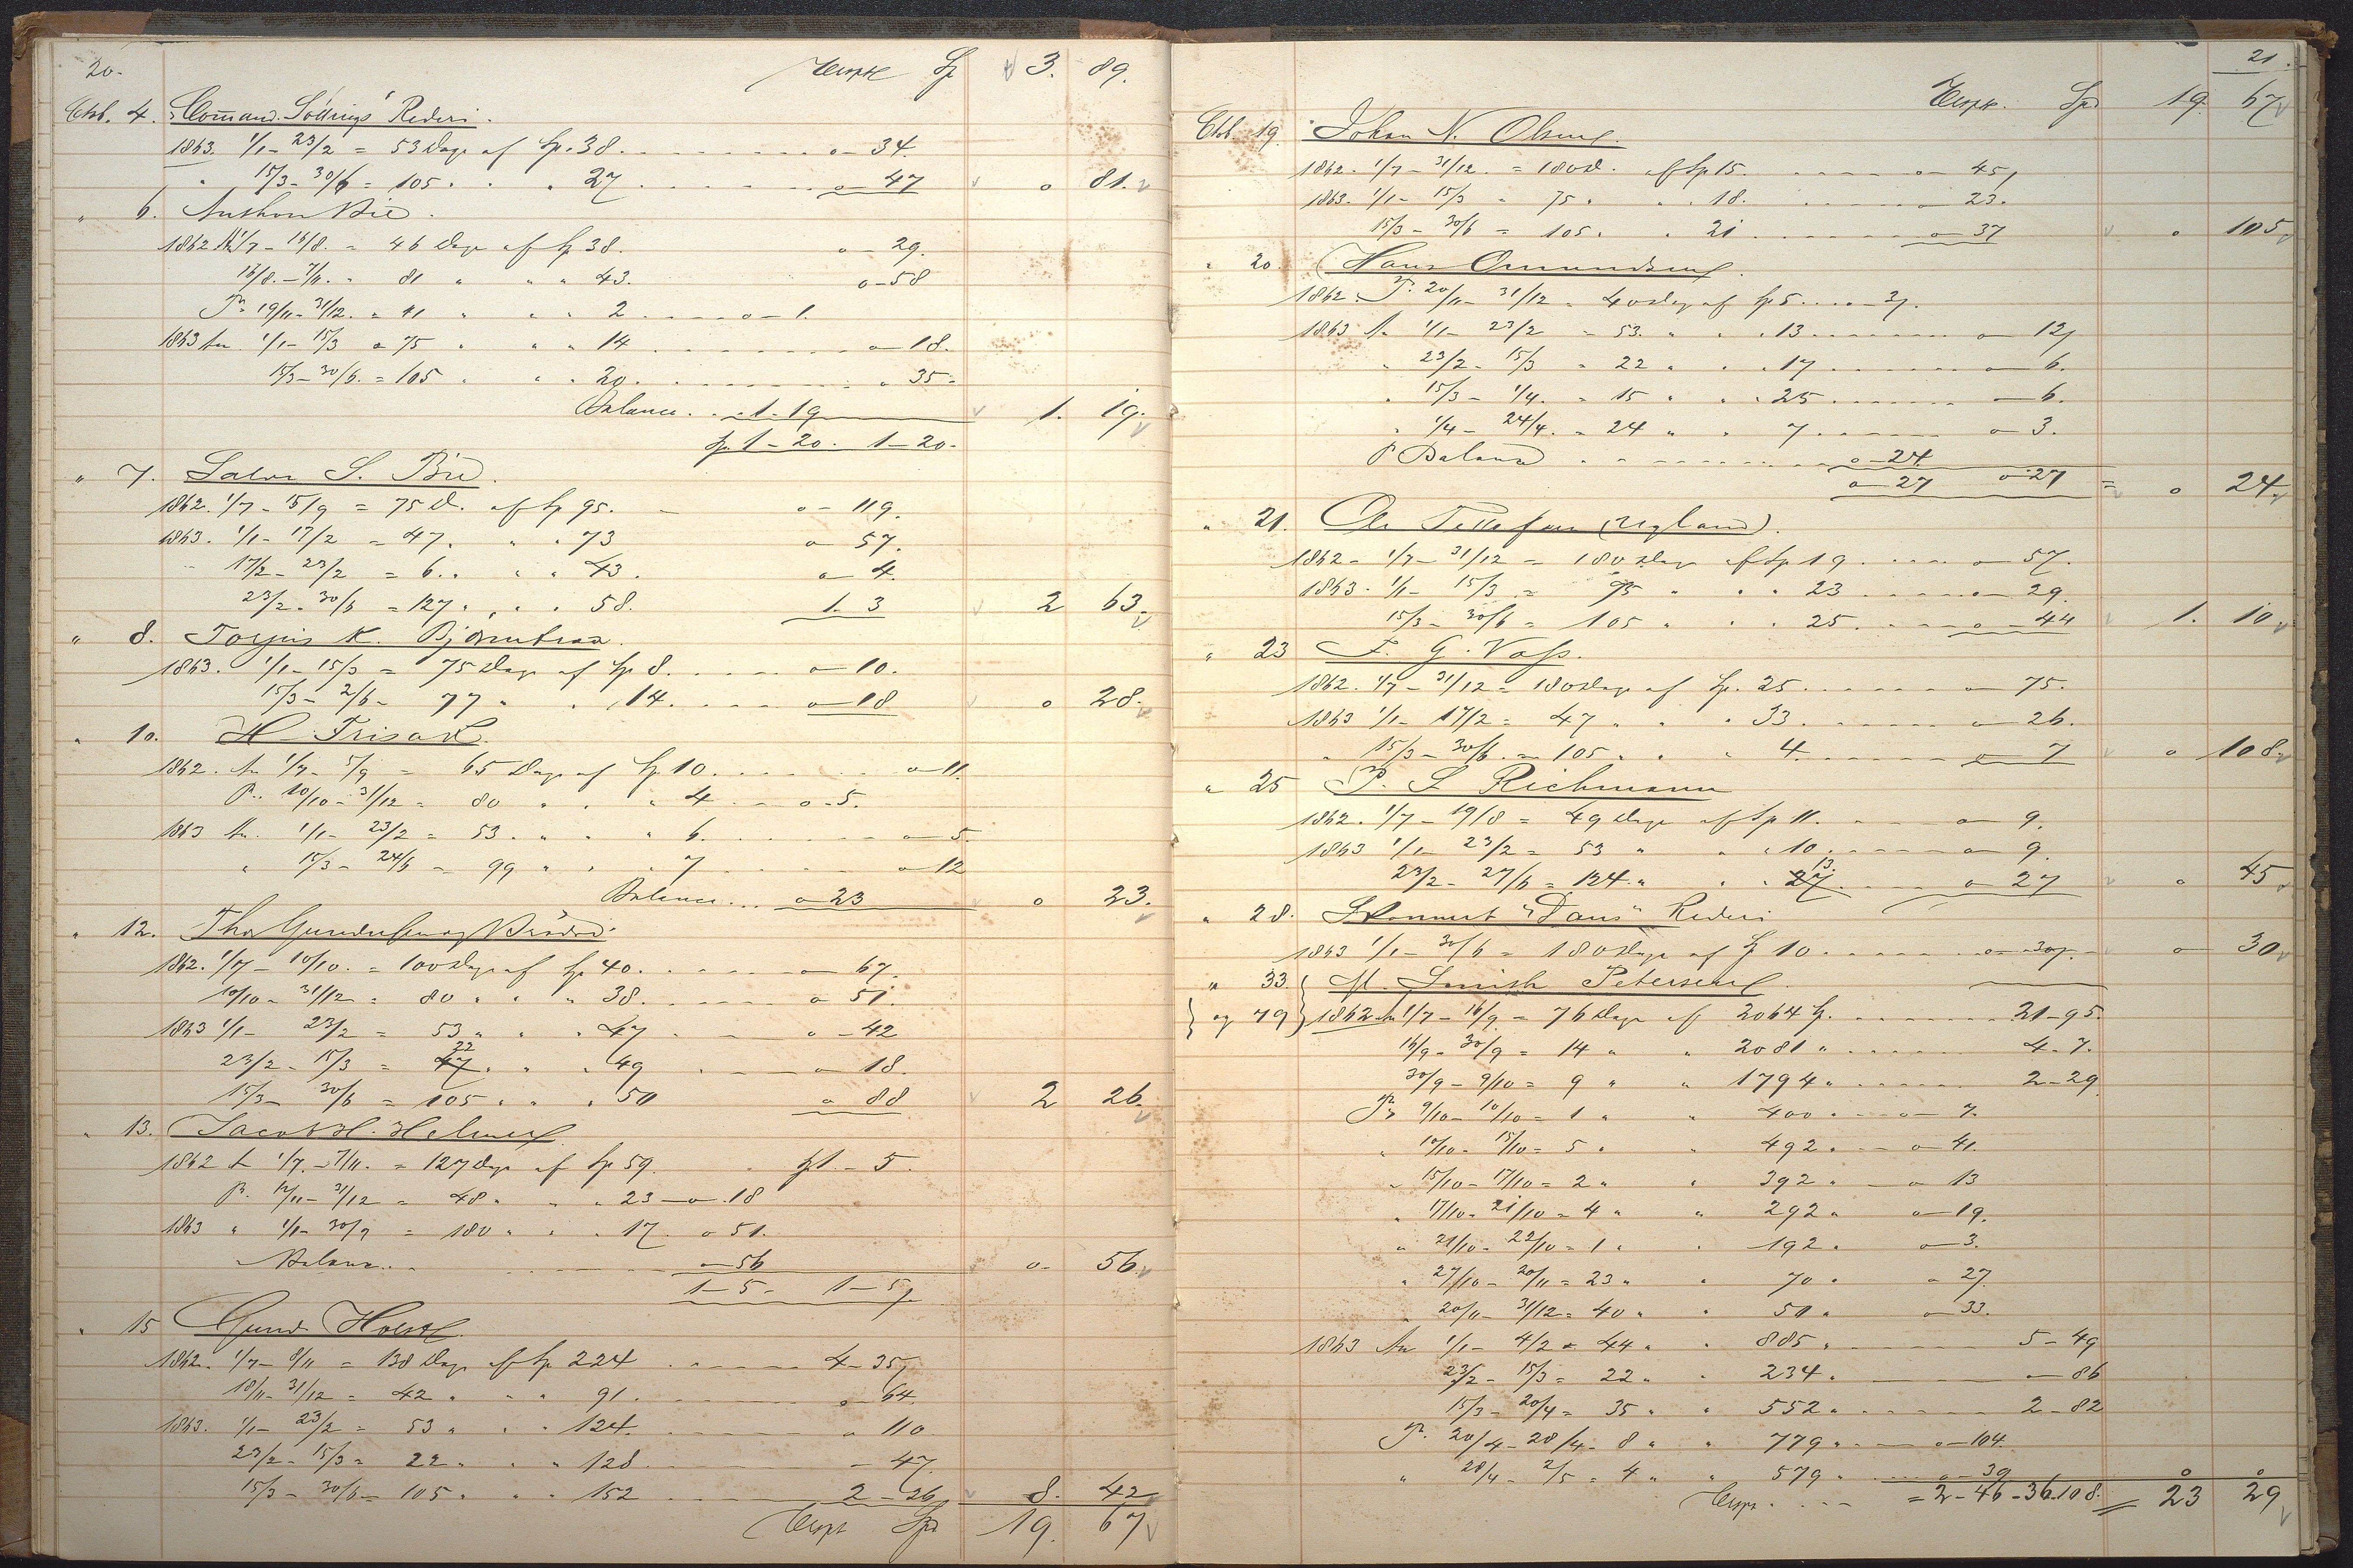 20.
Transp. Sp 3. 89.
Ctrb. 4. Command. Söllings Rederi.
1863. 1/1 - 23/2 = 53 Dage af Sp. 38. o - 34.
" 15/3 - 30/6 = 105 " " " 27 o - 47 o 81.
" 6. Anthon Bie.
1862 An 1/7 - 16/8. = 46 Dage af Sp 38. o - 29.
16/8. - 7/11. " 81 " " " 43. o - 58
Pr 19/11 - 31/12. = 41 " " " 2 o - 1.
1863 An. 1/1 - 15/3 = 75 " " " 14 o - 18.
15/3 - 30/6. = 105 " " " 20. " 35 "
Balance. 1 - 19 1. 19.
Sp. 1 - 20. 1 - 20.
" 7. Salve S. Bie.
1862. 1/7 - 15/9 = 75 D. af Sp 95. o - 119.
1863. 1/1 - 17/2 = 47. " " 73 o - 57.
17/2 - 23/2 = 6. " " " 43. o - 4.
23/2 - 30/6 = 127 " " " 58. 1. 3 2 63.
" 8. Torjus K. Bjørnteraa.
1863. 1/1 - 15/3 = 75 Dage af Sp 8. o - 10.
15/3 - 2/6 - 77 " " 14. o - 18 o 28.
" 10. H. Frisak.
1862. An 1/7 - 5/9 = 65 Dage af Sp 10. o - 11.
P. 10/10 - 31/12 = 80 " " " 4 o - 5.
1863 An. 1/1 - 23/2 = 53. " " " 6. o - 5.
" 15/3 - 24/6 = 99 " " " 7 o - 12
Balance o - 23 o 23.
" 12. Thos Gundersen og
1862. 1/7 - 10/10. = 100 Dage af Sp 40. o - 67.
10/10 - 31/12 = 80 " " " 38. o - 51.
1863 1/1 - 23/2 = 53 " " " 47 o - 42
23/2 - 15/3 = 47 22 " " " 49 o - 18.
15/3 - 30/6 = 105 " " " 50 o 88 2 26.
" 13. Jacob H. Helmer
1862 An 1/7. - 7/11. = 127 Dage af Sp 59. Sp 1. - 5.
P. 12/11 - 31/12 = 48 " " " 23 - o - 18
1863 " 1/1 - 30/9 = 180 " " " 17. o 51.
Balance o - 56 o - 56
1 - 5 - 1 - 5
" 15 Gund. Holst
1862. 1/7 - 8/11 = 138 Dage af Sp 224 4 - 35
18/11 - 31/12 = 42 " " " 91. o - 64.
1863. 1/1 - 23/2 = 53 " " " 124. o 110
23/2 - 15/3 = 22 " " " 128 - 47
15/3 - 30/6 = 105 " " " 152 2 - 26 8. 42
Transp Spd 19. 67
21.
Transp. Spd 19. 67
Ctrb. 19. Johan N. Olsen.
1862. 1/7 - 31/12. = 180 D. af Sp 15. o - 45
1863. 1/1 - 15/3 " 75 " " " 18. - 23.
15/3 - 30/6 = 105 " " 21 o - 37 o 105
" 20. Hans Omundsen.
1862. P. 20/11 - 31/12 = 40 Dage af Sp 5. o - 3.
1863 An 1/1 - 23/2 = 53. " " " 13 o - 12
" 23/2 - 15/3 " 22 " " " 17 - 6.
" 15/3 - 1/4. = 15 " " " 25 - 6.
" 1/4 - 24/4. = 24 " " 7 o - 3.
P Balance o - 24
o - 27 o - 27 = o 24.
" 21. Ole Tellefsen (Ugland).
1862 - 1/7 - 31/12 = 180 Dage af Sp 19 o - 57.
1863. 1/1 - 15/3 = 75 " " " 23 o - 29.
15/3 - 30/6 = 105 " " " 25. o - 44 1. 10
" 23 F. G. Voss.
1862. 1/7 - 31/12 = 180 Dage af Sp. 25 o - 75.
1863 1/1 - 17/2 = 47 " " " 33 o - 26.
" 15/3 - 30/6 = 105 " " " 4. o - 7 o 108
" 25 P. S. Richmann
1862. 1/7 - 19/8 = 49 Dage af Sp 11. o - 9.
1863 1/1 - 23/2 = 53 " " " 10 o - 9.
23/2 - 27/6 = 124 " " " 27 13. o 27 o 45
" 28. Skonnert "Dans" Rederi
1863 1/1 - 30/6 = 180 Dage af Sp 10 o - 30 o 30
" 33 M. Smith Petersen.
og 79 1862 An 1/7 - 16/9 = 76 Dage af 2064 Sp. 21 - 95.
16/9 - 30/9 = 14 " " 2081 " 4 - 7.
30/9 - 9/10 = 9 " " 1794 " 2 - 29
Pr 9/10 - 10/10 = 1 " " 400 " o - 7.
" 10/10 - 15/10 = 5 " " 492 " o - 41.
" 15/10 - 17/10 = 2 " " 392 " o 13
" 17/10 - 21/10 = 4 " " 292 " o - 19.
" 21/10 - 22/10 = 1 " " 192 " o - 3.
" 27/10 - 20/11 = 23 " " 70 " o 27.
20/11 - 31/12 = 40 " " 50 " o - 33.
1863 An 1/1 - 4/2 = 44 " " 885 " 5 - 49
23/2 - 15/3 = 22 " " 234 " - 86
15/3 - 20/4 = 35 " " 552 " 2 - 82
P. 20/4 - 28/4 - 8 " " 779 " o - 104
" 28/4 - 2/5 = 4 " " 579 " o - 39 o o
Transp. = 2 - 46 - 36 - 108. = 23 29